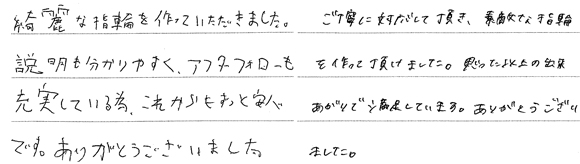 綺麗な指輪を作っていただきました。
説明も分かりやすく、アフターフォローも
充実している為、これからもずっと安心
です。ありがとうございました。
ご丁寧に対応して頂き、素敵な指輪
を作って頂けました。思っていた以上の出来
あがりで満足しています。ありがとうござい
ました。